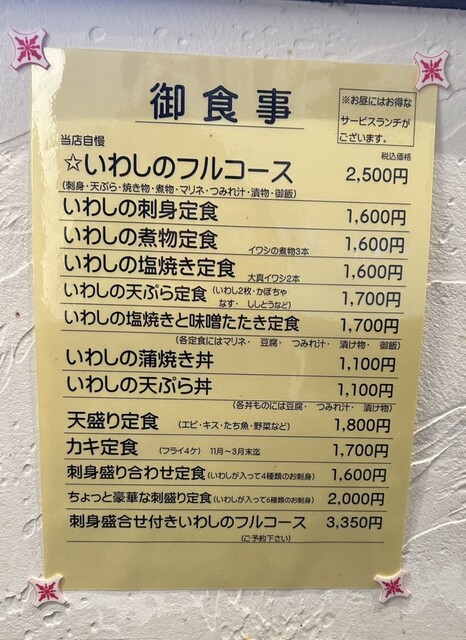 御食事
※お昼にはお得な
サービスランチが
ございます。
当店自慢
税込価格
☆いわしのフルコース 2,500円
(刺身・天ぷら・焼き物・煮物・マリネ・つみれ汁・漬物・御飯)
いわしの刺身定食 1,600円
いわしの煮物定食 イワシの煮物3本 1,600円
いわしの塩焼き定食 大真イワシ2本 1,600円
いわしの天ぷら定食 (いわし2枚・かぼちゃ 1,700円
なす・ししとうなど)
いわしの塩焼きと味噌たたき定食 1,700円
(各定食にはマリネ・豆腐・つみれ汁・漬け物・御飯)
いわしの蒲焼き丼 1,100円
いわしの天ぷら丼 1,100円
(各丼ものには豆腐・つみれ汁・漬け物)
天盛り定食 (エビ・キス・たち魚・野菜など) 1,800円
カキ定食 (フライ4ケ) 11月〜3月末迄 1,700円
刺身盛り合わせ定食 (いわしが入って4種類のお刺身) 1,600円
ちょっと豪華な刺盛り定食 (いわしが入って6種類のお刺身) 2,000円
刺身盛合せ付きいわしのフルコース 3,350円
(ご予約下さい)